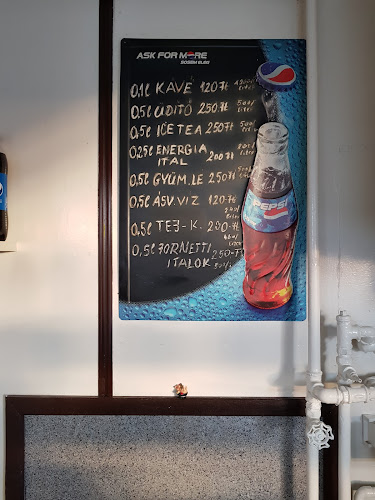 ASK FOR MORE
0,1l KÁVÉ 120Ft
0,5l ÜDÍTŐ 250Ft
0,5l ICE TEA 250Ft
0,25l ENERGIA
ITAL 200Ft
0,5l GYÜM.LÉ 250Ft
0,5l ÁSV.VIZ 120Ft
0,5l TEJ-K. 200Ft
0,5l FORNETTI
ITALOK 250Ft
PEPSI